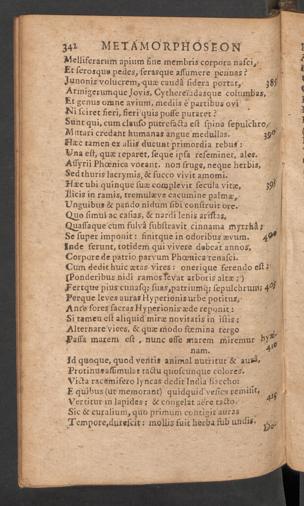 342 METAMORPHOSEON
Melliferarum apium sine membris corpora nasci,
Et serosque pedes, serasque assumere pennas?
Junonis volucrem, quæ cauda sidera portat, 385
Armigerumque Jovis, Cythereiadasque columbas,
Et genus omne avium, mediis è partibus ovi
Ni sciret fieri, fieri quis posse putaret?
Sunt qui, cum clauso putrefacta est spina sepulchro,
Mutari credant humanas angue medullas. 390
Hæc tamen ex aliis ducunt primordia rebus:
Una est, quæ reparet, seque ipsa reseminet, ales.
Assyrii Phœnica vocant. non fruge, neque herbis,
Sed thuris lacrymis, & succo vivit amomi.
Hæc ubi quinque suæ complevit secula vitæ, 395
Ilicis in ramis, tremulæve cacumine palmæ,
Unguibus & pando nidum sibi construit ore.
Quo simul ac casias, & nardi lenis aristas,
Quassaque cum fulvâ substravit cinnama myrrhâ;
Se super imponit: finitque in odoribus ævum. 400
Inde ferunt, totidem qui vivere debeat annos,
Corpore de patrio parvum Phœnica renasci.
Cum dedit huic ætas vires: onerique ferendo est:
(Ponderibus nidi ramos levat arboris altæ:)
Fertque pius cunasq; suas, patriumq; sepulchrum: 405
Perque leves auras Hyperionis urbe potitus,
Ante fores sacras Hyperionis æde reponit:
Si tamen est aliquid miræ novitatis in istis:
Alternare vices, & quæ modo fœmina tergo
Passa marem est, nunc esse marem miremur hyænam. 410
Id quoque, quod ventis animal nutritur & aurâ,
Protinus assimulat tactu quoscunque colores.
Victa racemifero lyncas dedit India Baccho:
E quibus (ut memorant) quidquid vesica remisit,
Vertitur in lapides; & congelat aëre tacto. 415
Sic & curalium, quo primum contigit auras
Tempore, durescit: mollis fuit herba sub undis.